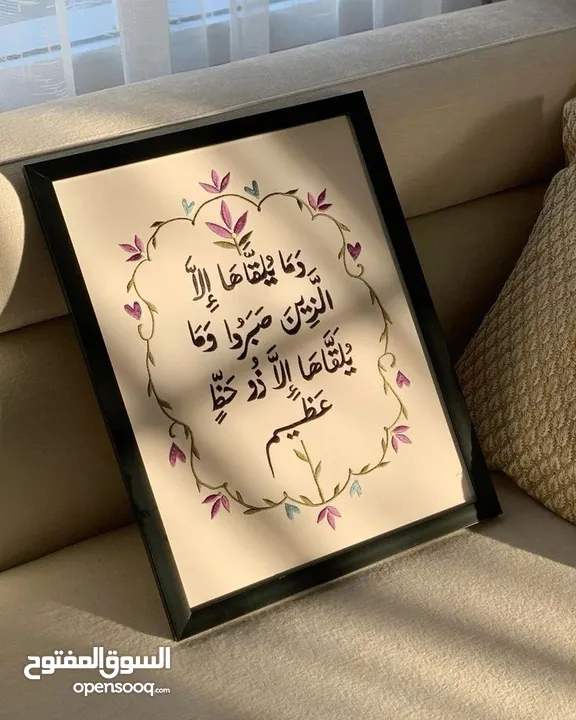 وَمَا يُلَقَّاهَا إِلَّا
الَّذِينَ صَبَرُوا وَمَا
يُلَقَّاهَا إِلَّا ذُو حَظٍّ
عَظِيم
السوق المفتوح
opensooq.com